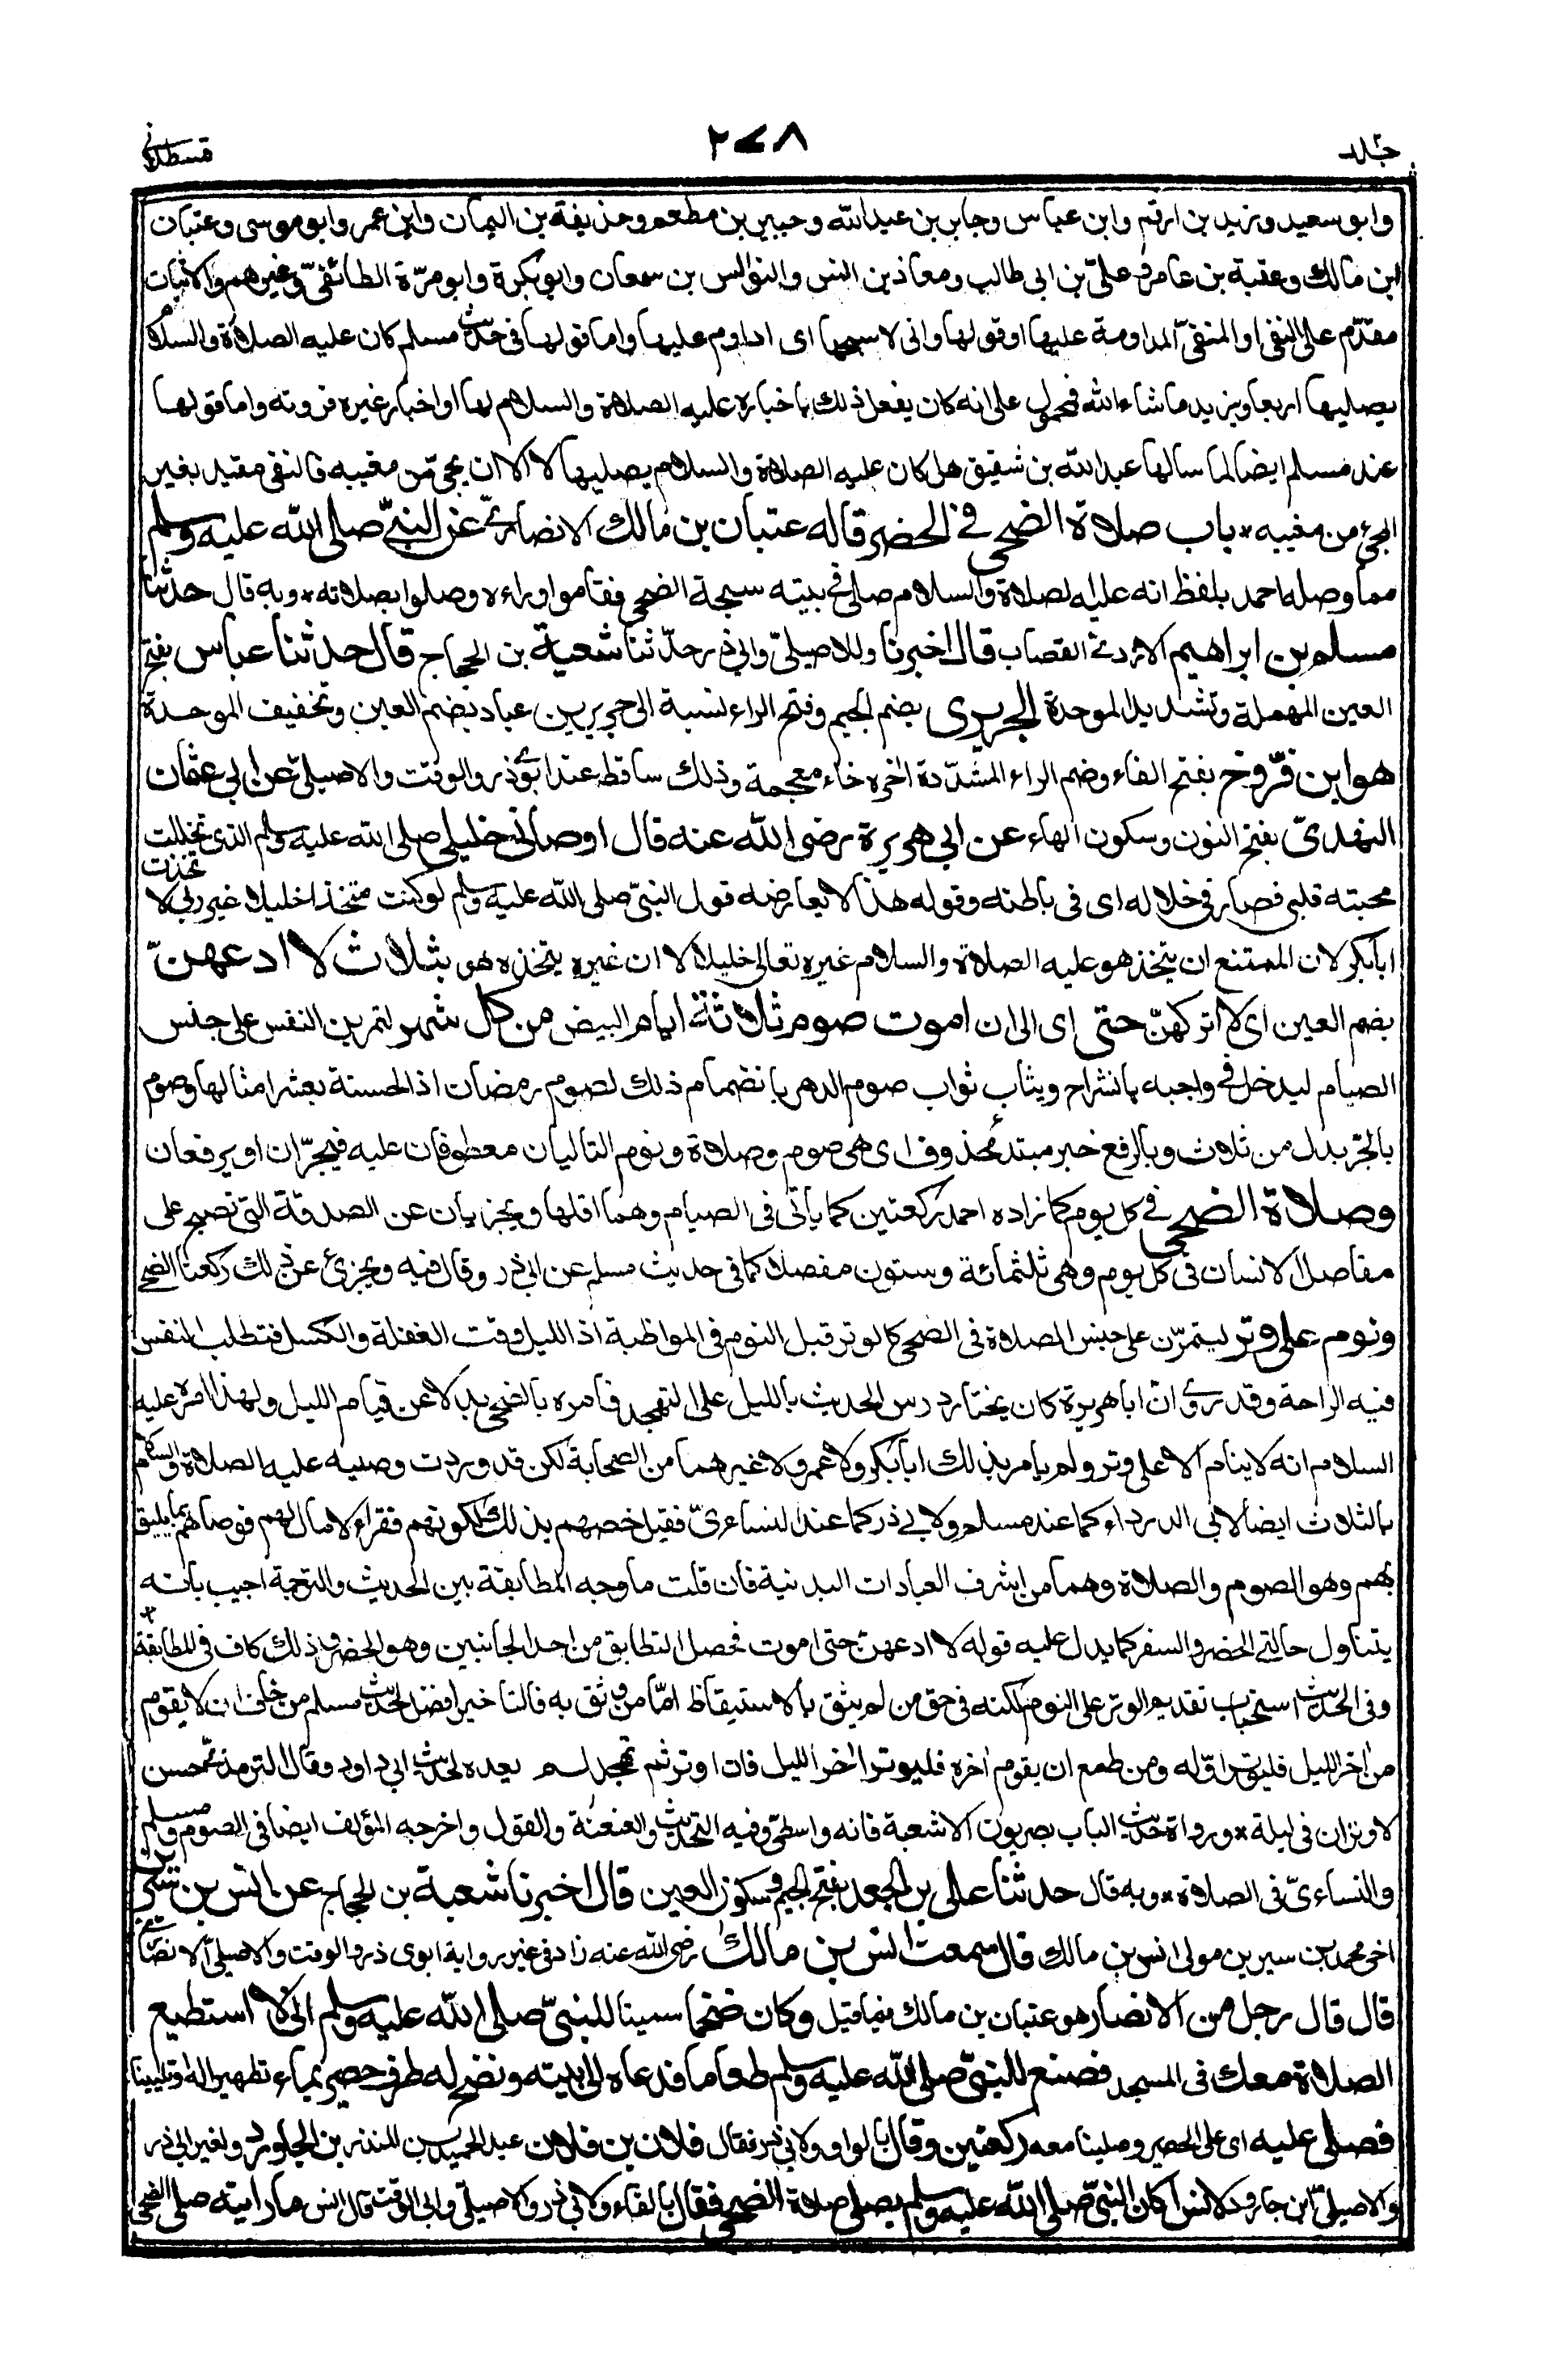 جلد ٢٧٨ قسطلانى
وابو سعيد وزيد بن ارقم وابن عباس وجابر بن عبد الله وجبير بن مطعم وحذيفة بن اليمان وابن عمر وابو موسى وعتبان
ابن مالك وعقبة بن عامر وعلىّ بن ابى طالب ومعاذ بن انس والنوّاس بن سمعان وابو بكرة وابو مرّة الطائفىّ وغيرهم والاثبات
مقدّم على النفى او المنفىّ المداومة عليها وقولها وانى لاسبحها اى اداوم عليها واما قولها فى حديث مسلم كان عليه الصلاة والسلام
يصليها اربعا ويزيد ما شاء الله فمحمول على انه كان يفعل ذلك باخباره عليه الصلاة والسلام لها او اخبار غيره فروته واما قولها
عند مسلم ايضا لما سالها عبد الله بن شقيق هل كان عليه الصلاة والسلام يصليها لا الا ان يجئ من مغيبه فالنفى مقيد بغير
المجئ من مغيبه * باب صلاة الضحى فى الحضر قاله عتبان بن مالك الانصارىّ عن النبىّ صلى الله عليه وسلم
مما وصله احمد بلفظ انه عليه الصلاة والسلام صلى فى بيته سبحة الضحى فقاموا وراءه وصلوا بصلاته * وبه قال حدثنا
مسلم بن ابراهيم الازدىّ القصاب قال اخبرنا وللاصيلىّ وابى ذر حدّثنا شعبة بن الحجاج قال حدثنا عباس بفتح
العين المهملة وتشديد الموحدة الجريرى بضم الجيم وفتح الراء نسبة الى جرير بن عباد بضم العين وتخفيف الموحدة
هو ابن فرّوخ بفتح الفاء وضم الراء المشدّدة اخره خاء معجمة وذلك ساقط عند ابوى ذر والوقت والاصيلىّ عن ابى عثمان
النهدىّ بفتح النون وسكون الهاء عن ابى هريرة رضى الله عنه قال اوصانى خليلى صلى الله عليه وسلم الذى تخللت
محبته قلبى فصار فى خلاله اى فى باطنه وقوله هذا لا يعارضه قول النبىّ صلى الله عليه وسلم لو كنت متخذا خليلا غير ربى لاتخذت
ابا بكر لان الممتنع ان يتخذ هو عليه الصلاة والسلام غيره تعالى خليلا لا ان غيره يتخذه هو بثلاث لا ادعهنّ
بضم العين اى لا اتركهنّ حتى اى الى ان اموت صوم ثلاثة ايام البيض من كل شهر لتمرين النفس على جنس
الصيام ليدخل فى واجبه بانشراح ويثاب ثواب صوم الدهر بانضمام ذلك لصوم رمضان اذ الحسنة بعشر امثالها وصوم
بالجرّ بدل من ثلاث وبالرفع خبر مبتدٲ محذوف اى هى صوم وصلاة ونوم التاليان معطوفان عليه فيجرّان او يرفعان
وصلاة الضحى فى كل يوم كما زاده احمد ركعتين كما يأتى فى الصيام وهما اقلها ويجزيان عن الصدقة التى تصبح على
مفاصل الانسان فى كل يوم وهى ثلثمائة وستون مفصلا كما فى حديث مسلم عن ابى ذر وقال فيه ويجزئ عن ذلك ركعتا الضحى
ونوم على وتر ليتمرّن على جنس الصلاة فى الضحى كالوتر قبل النوم فى المواظبة اذ الليل وقت الغفلة والكسل فتطلب النفس
فيه الراحة وقد روى انّ ابا هريرة كان يختار درس الحديث بالليل على التهجد فامره بالضحى بدلا عن قيام الليل ولهذا امره عليه
السلام انه لا ينام الا على وتر ولم يامر بذلك ابا بكر ولا عمر ولا غيرهما من الصحابة لكن قد وردت وصيه عليه الصلاة والسلام
بالثلاث ايضا لابى الدرداء كما عند مسلم ولابى ذر كما عند النساءىّ فقيل خصهم بذلك لكونهم فقراء لا مال لهم فوصاهم بما يليق
بهم وهو الصوم والصلاة وهما من اشرف العبادات البدنية فان قلت ما وجه المطابقة بين الحديث والترجمة اجيب بانه
يتناول حالتى الحضر والسفر كما يدل عليه قوله لا ادعهنّ حتى اموت فحصل التطابق من احد الجانبين وهو الحضر وذلك كاف فى المطابقة *
وفى الحديث استحباب تقديم الوتر على النوم لكنه فى حق من لم يثق بالاستيقاظ امّا من وثق به فالتاخير افضل لحديث مسلم من خاف ان لا يقوم
من اخر الليل فليوتر اوّله ومن طمع ان يقوم اخره فليوتر اخر الليل فان اوتر ثم تهجد لم يعده لحديث ابى داود وقال الترمذىّ حسن
لا وتران فى ليلة * ورواة حديث الباب بصريون الا شعبة فانه واسطىّ وفيه التحديث والعنعنة والقول واخرجه المؤلف ايضا فى الصوم ومسلم
والنساءىّ فى الصلاة * وبه قال حدثنا على بن الجعد بفتح الجيم وسكون العين قال اخبرنا شعبة بن الحجاج عن انس بن سيرين
اخى محمد بن سيرين مولى انس بن مالك قال سمعت انس بن مالك رضى الله عنه زاد فى غير رواية ابوى ذر والوقت والاصيلىّ الانصارىّ
قال قال رجل من الانصار هو عتبان بن مالك فيما قيل وكان ضخما سمينا للنبىّ صلى الله عليه وسلم انى لا استطيع
الصلاة معك فى المسجد فصنع للنبىّ صلى الله عليه وسلم طعاما فدعاه الى بيته ونضح له طرف حصير بماء تطهيرا له او تليينا
فصلى عليه اى على الحصير وصلينا معه ركعتين وقال بالواو ولابى ذر فقال فلان بن فلان عبد الحميد بن المنذر بن الجاورد ولغير ابى ذر
والاصيلىّ ابن جارود لانس اكان النبىّ صلى الله عليه وسلم يصلى صلاة الضحى فقال بالفاء ولابى ذر والاصيلىّ وابى الوقت قال انس ما رايته صلى الضحى